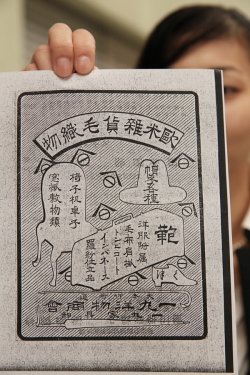 歐米雜貨毛織物
帽各種
範
洋服附属
毛布肩掛
トンビコート
インバネス
羅紗仕立品
椅子机車子
窓掛敷物類
一九洋物商會